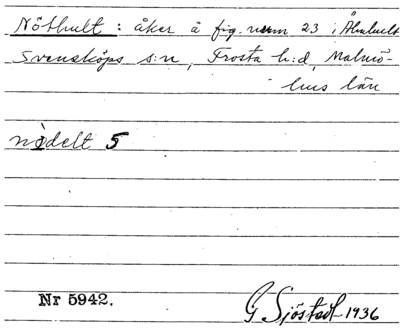 Nöthult : åker å fig. num 23 i Älmhult
Svensköps s:n, Frosta h:d, Malmö-
hus län
nø̀delt 5
Nr 5942.
G Sjöstedt 1936